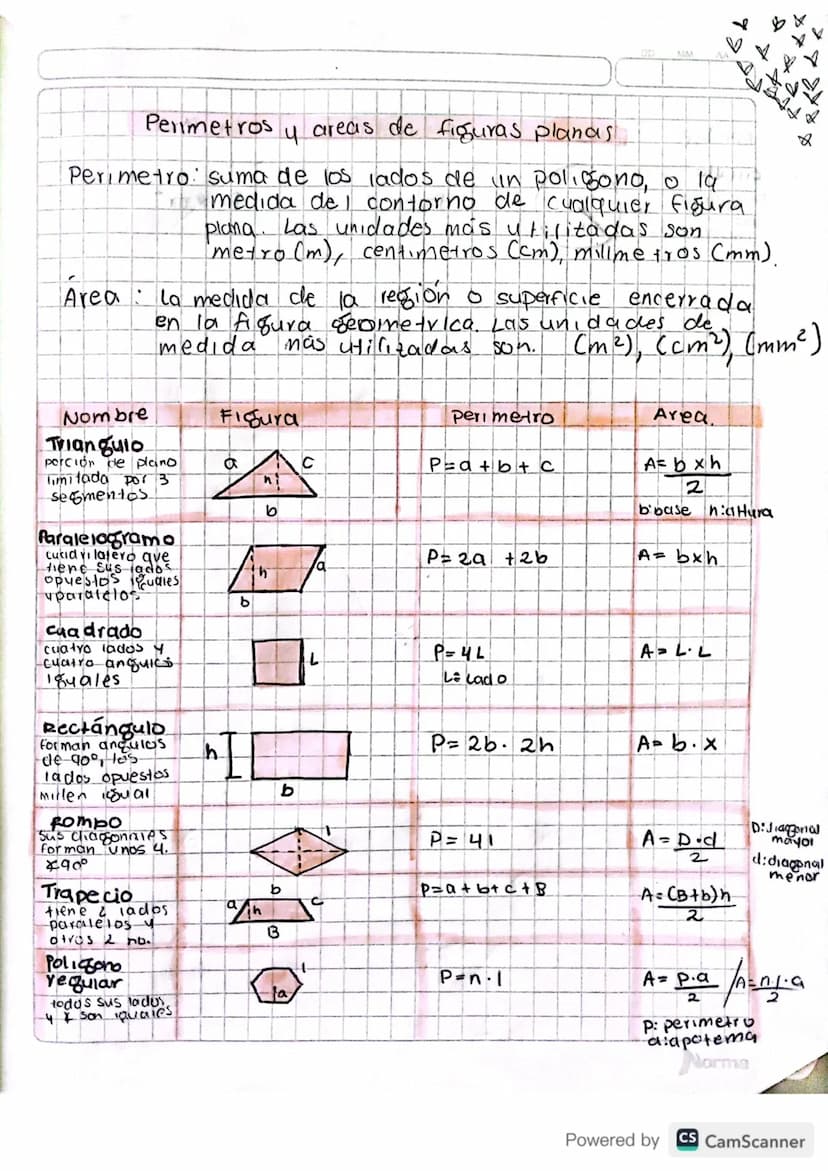 DD MM AA
Perimetros y areas de figuras planas
Perimetro: suma de los lados de un poligono, o la
medida del contorno de cualquier figura
plana. Las unidades más utilitadas son
metro (m), centimetros (cm), milimetros (mm).
Área : La medida de la región o superficie encerrada
en la figura geometrica. Las unidades de
medida más utilitadas son. (m²), (cm²), (mm²)
Nombre Figura Perimetro Area.
Triangulo
porción de plano
limitada por 3
segmentos
a c
h
b
P= a + b + c
A= b x h
2
b:base h:altura
Paralelogramo
cuadrilatero que
tiene sus lados
opuestos iguales
y paralelos.
h a
b
P= 2a + 2b
A= bxh
Cuadrado
cuatro lados y
cuatro angulos
iguales
L
P= 4L
L: Lado
A= L·L
Rectángulo
Forman angulos
de 90°, los
lados opuestos
miden igual
h
b
P= 2b. 2h
A= b.x
Rombo
Sus diagonales
forman unos 4.
∡90°
l
P= 4l
A= D·d
2
D:diagonal
mayor
d:diagonal
menor
Trapecio
tiene 2 lados
paralelos y
otros 2 no.
b
a h c
B
P=a+b+c+B
A=(B+b)h
2
Poligono
regular
todos sus lados
y ∡ son iguales
l
a
P=n·l
A= p.a / A=n.l.a
2 2
p: perimetro
a:apotema
Norma
Powered by CS CamScanner